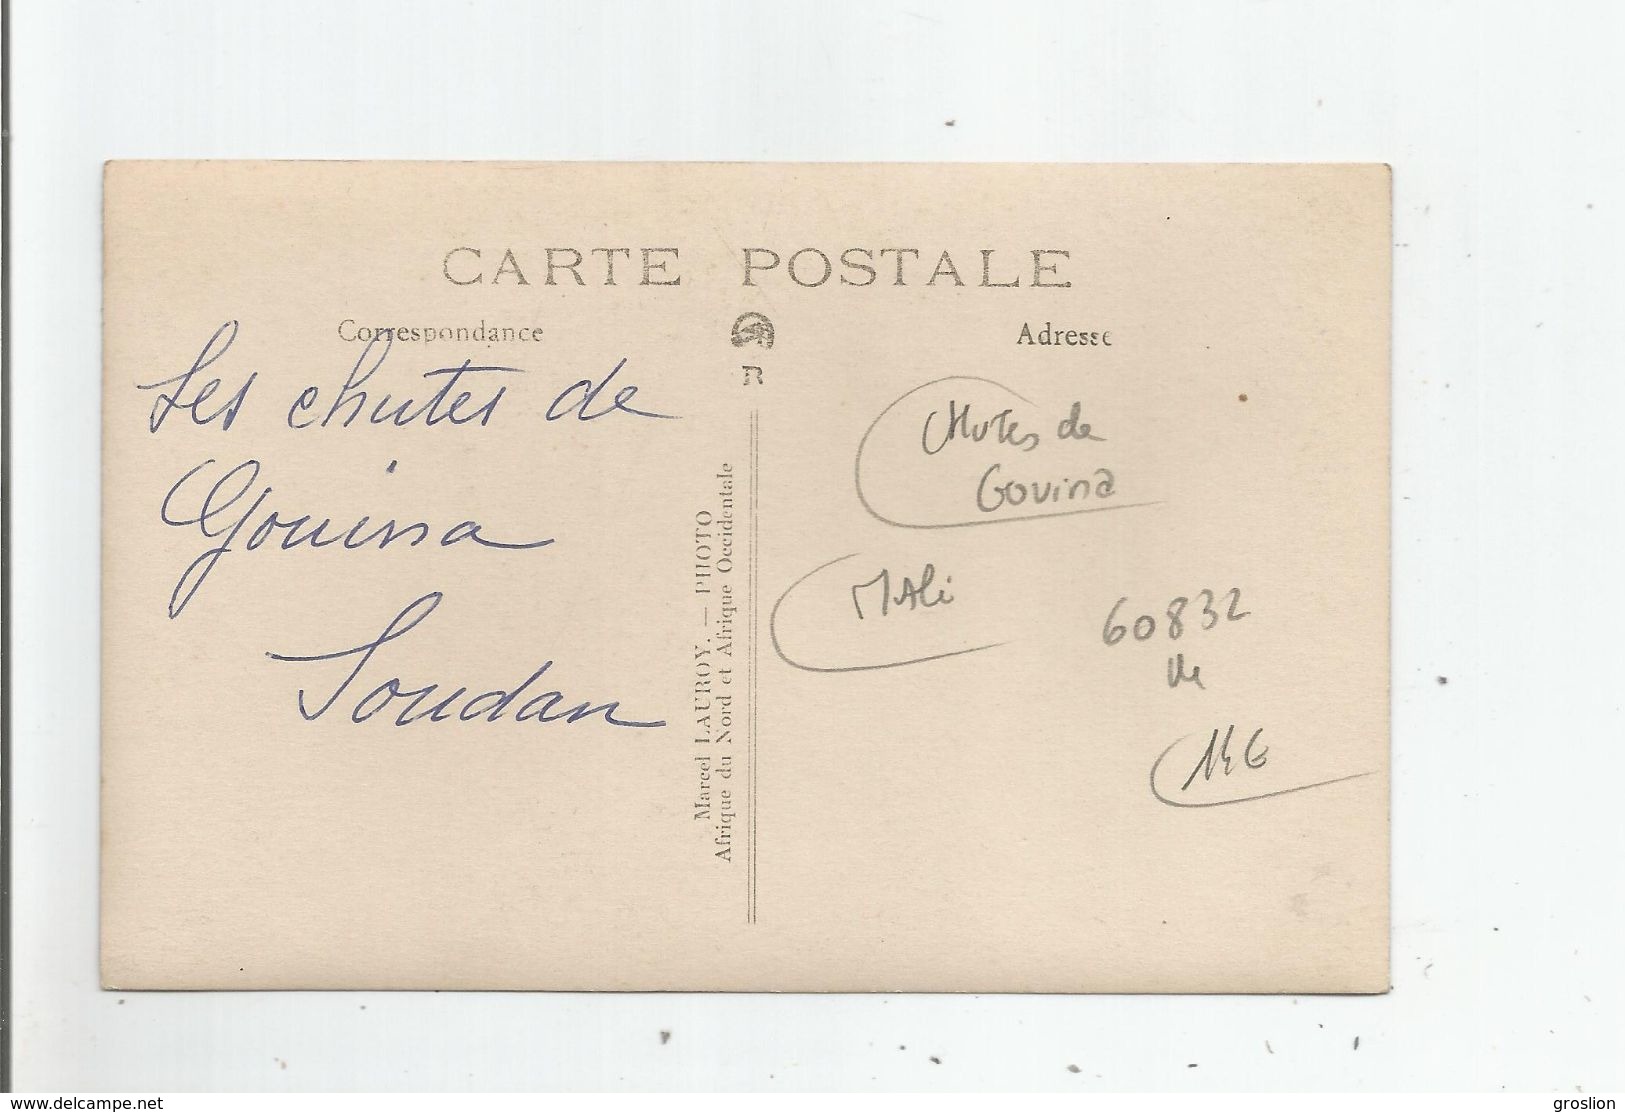 CARTE POSTALE
Correspondance
Adresse
R
Les chutes de
Gouina
Soudan
Marcel LAUROY. — PHOTO
Afrique du Nord et Afrique Occidentale
Chutes de
Gouina
MALi
60832
146
www.delcampe.net
groslion